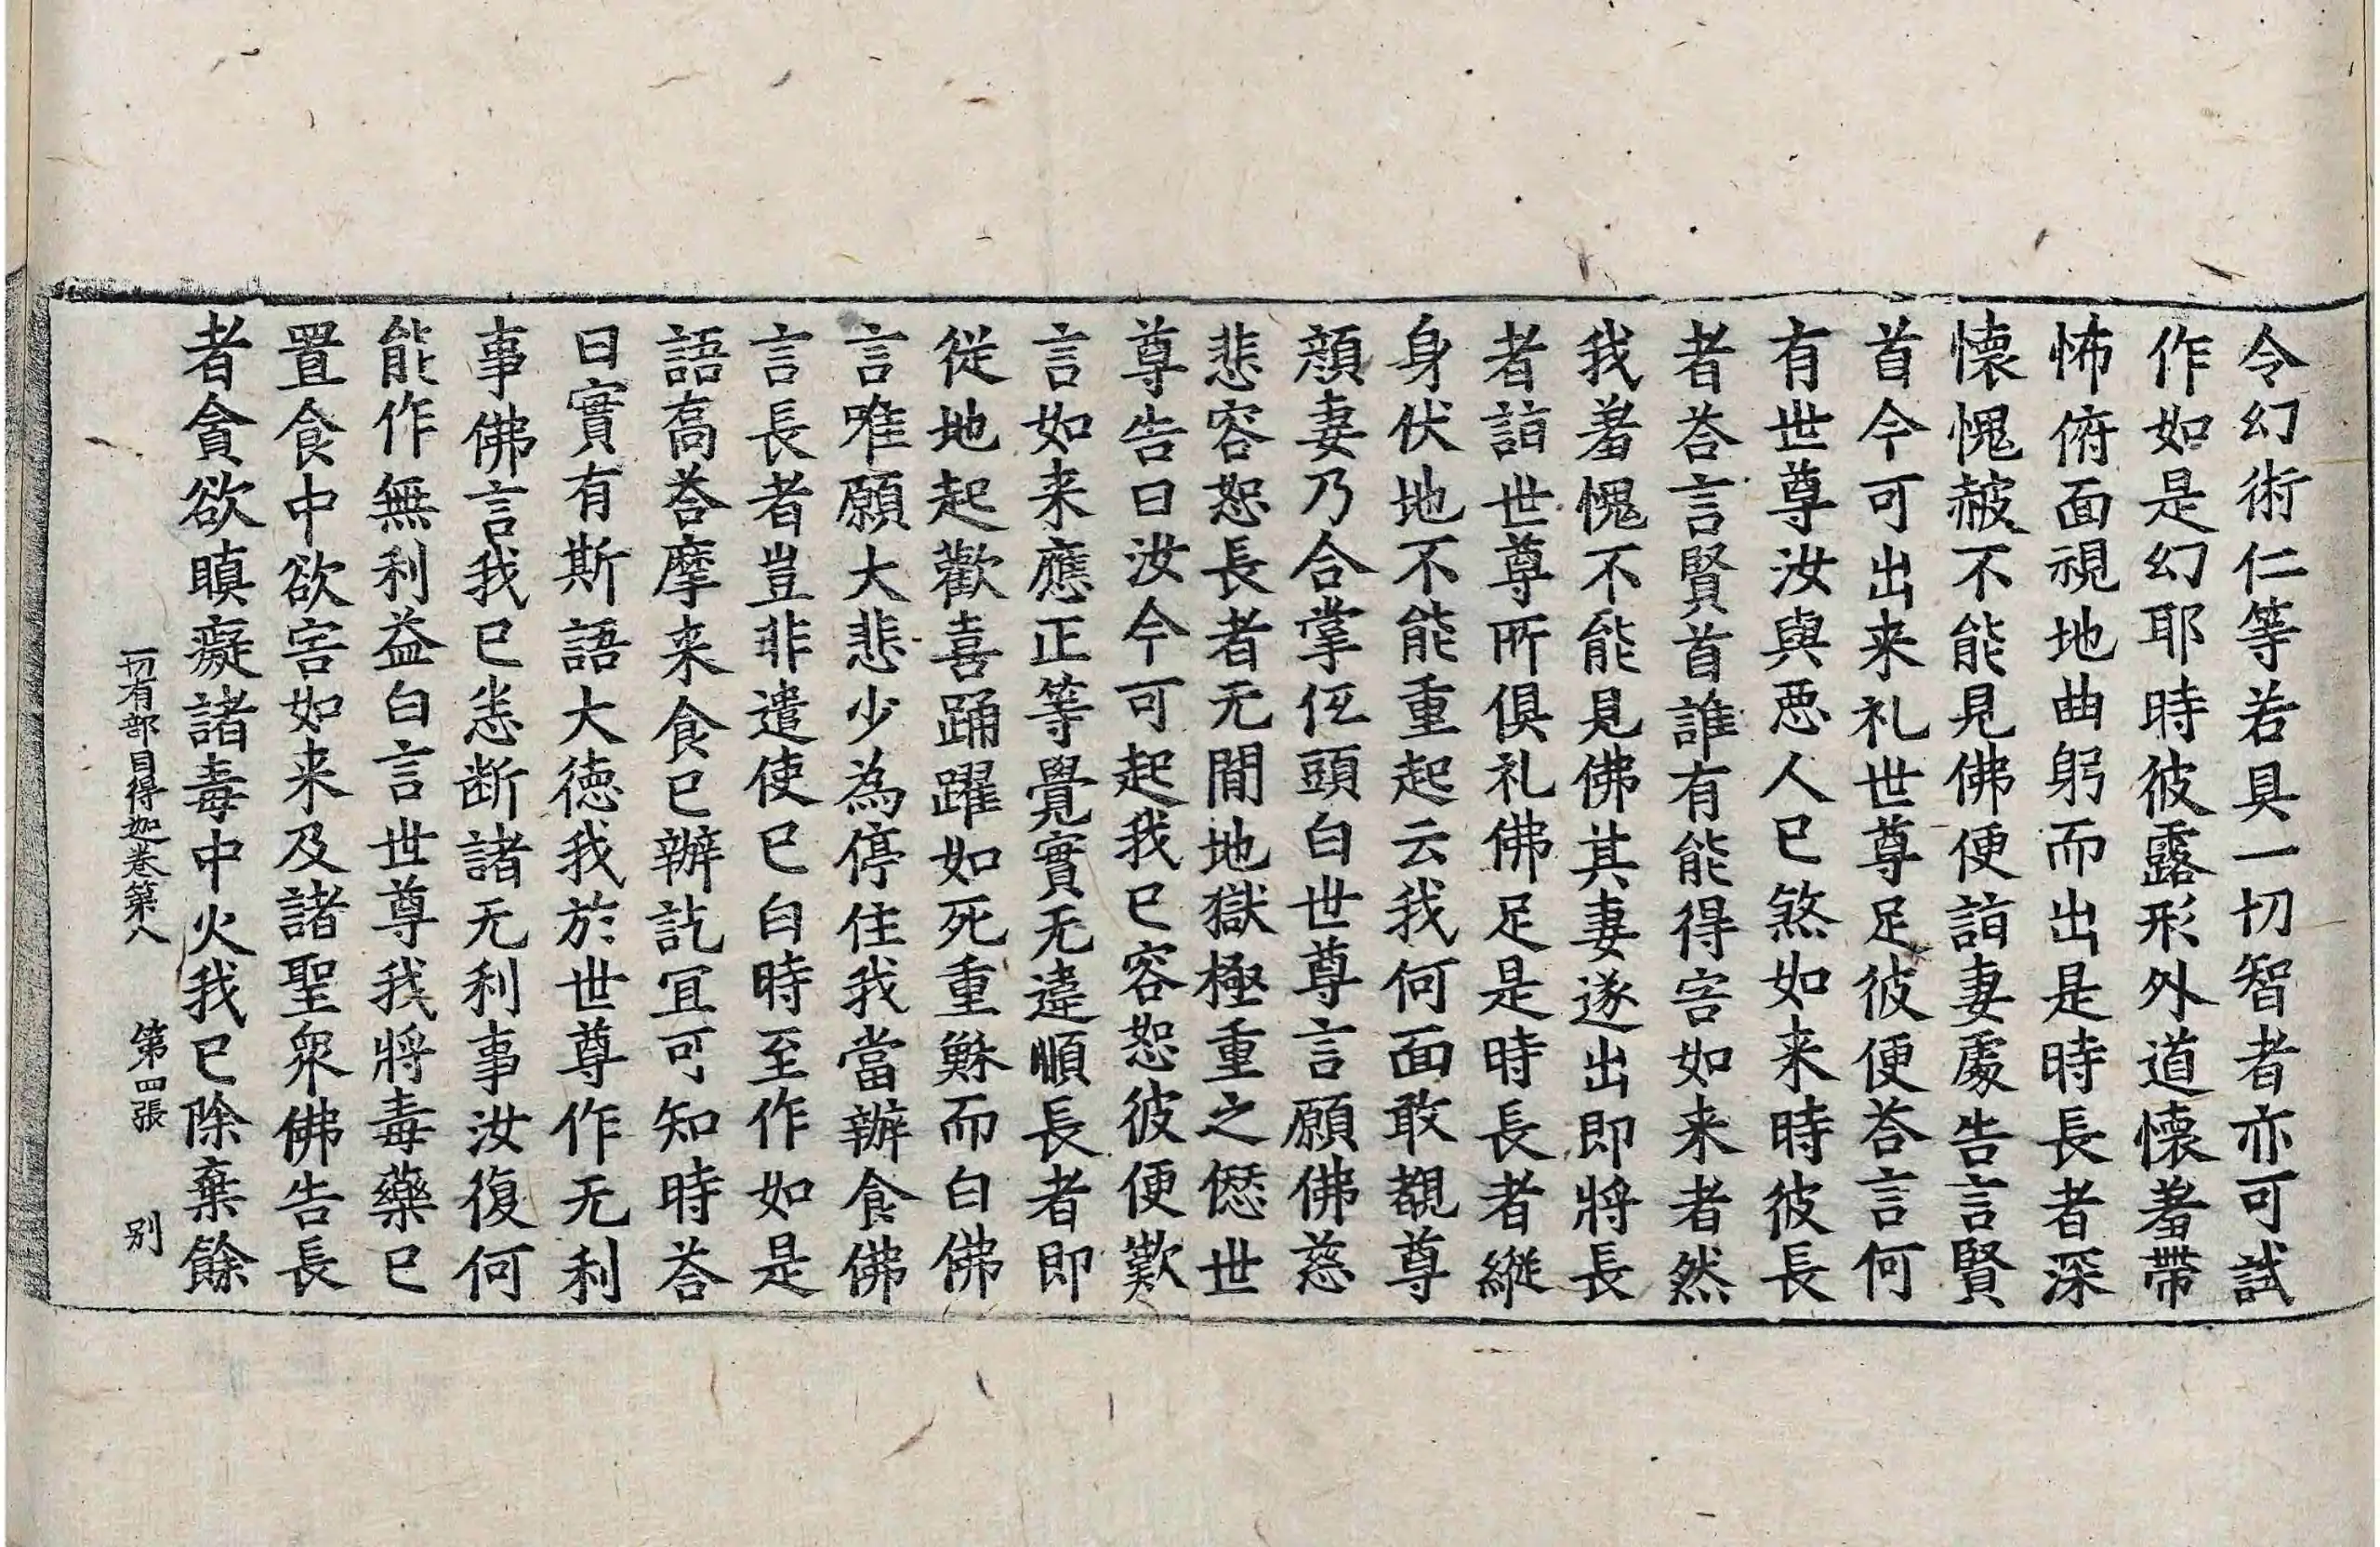 令幻術仁等若具一切智者亦可試
作如是幻耶時彼露形外道懷羞帶
怖俯面視地曲躬而出是時長者深
懷愧赧不能見佛便詣妻處告言賢
首今可出来礼世尊足彼便荅言何
有世尊汝與惡人已煞如来時彼長
者荅言賢首誰有能得害如来者然
我羞愧不能見佛其妻遂出即將長
者詣世尊所俱礼佛足是時長者縱
身伏地不能重起云我何面敢覩尊
顔妻乃合掌低頭白世尊言願佛慈
悲容恕長者无間地獄極重之愆世
尊告曰汝今可起我已容恕彼便歎
言如来應正等覺實无違順長者即
從地起歡喜踊躍如死重穌而白佛
言唯願大悲少為停住我當辦食佛
言長者豈非遣使已白時至作如是
語高荅摩来食已辦訖冝可知時荅
曰實有斯語大德我於世尊作无利
事佛言我已恙断諸无利事汝復何
能作無利益白言世尊我將毒藥已
置食中欲害如来及諸聖衆佛告長
者貪欲瞋癡諸毒中火我已除棄餘
一切有部目得迦卷第八 第四張 別